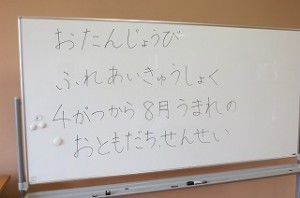 おたんじょうび
ふれあいきゅうしょく
4がつから8月うまれの
おともだち、せんせい